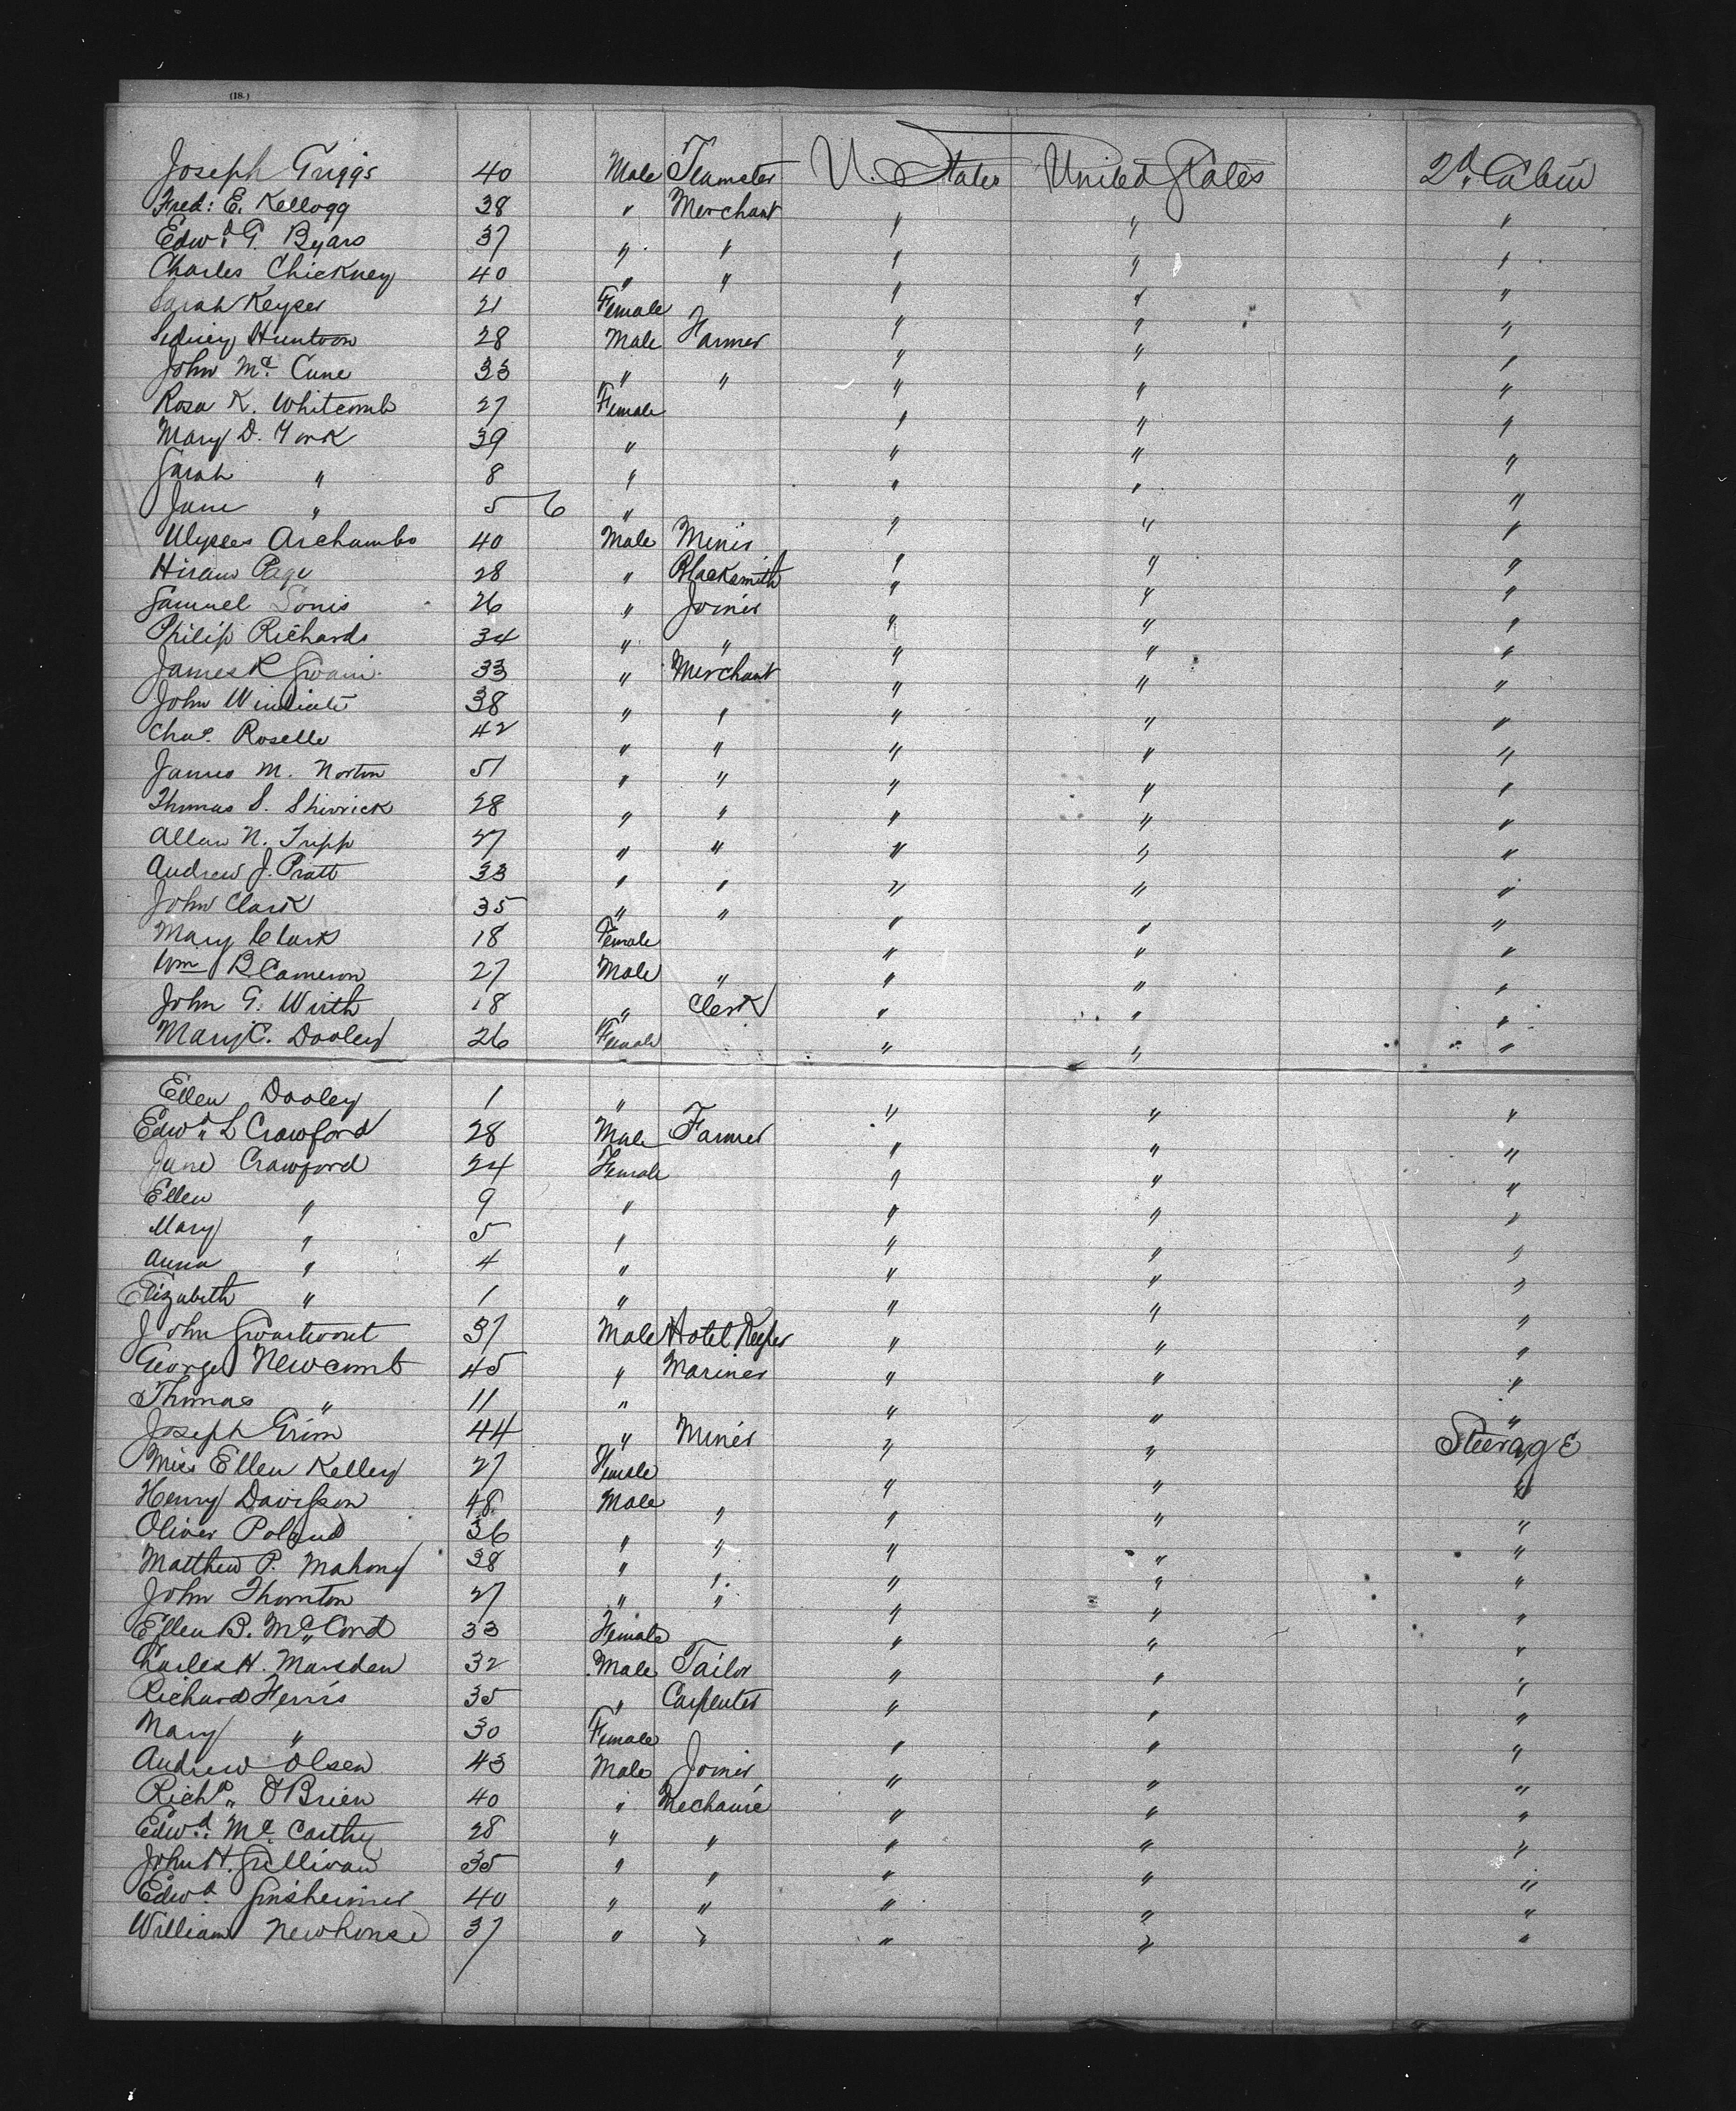 (18.)
Joseph Griggs 40 Male Teamster U. States United States 2d Cabin
Fred: E. Kellogg 38 " Merchant " " "
Edwd G. Byars 37 " " " " "
Charles Chickney 40 " " " " "
Sarah Keyser 21 Female " " "
Sidney Huntoon 28 Male Farmer " " "
John Mc Cune 33 " " " " "
Rosa K. Whitcomb 27 Female " " "
Mary D. York 39 " " " "
Sarah " 8 " " " "
Jane " 5 6 " " " "
Ulysses Archambo 40 Male Miner " " "
Hiram Page 28 " Blacksmith " " "
Samuel 26 " Joiner " " "
Philip Richards 34 " " " " "
James R Swain 33 " Merchant " " "
John 38 " " " " "
Chas. Roselle 42 " " " " "
James M. Norton 51 " " " " "
Thomas S. Shivrick 28 " " " " "
Allan N. Tripp 27 " " " " "
Andrew J. Pratt 33 " " " " "
John Clark 35 " " " " "
Mary Clark 18 Female " " "
Wm B. Cameron 27 Male " " " "
John G. Wirth 18 " Clerk " " "
Mary C. Dooley 26 Female " " "
Ellen Dooley 1 " " " "
Edwd L Crawford 28 Male Farmer " " "
Jane Crawford 24 Female " " "
Ellen " 9 " " " "
Mary " 5 " " " "
Anna " 4 " " " "
Elizabeth " 1 " " " "
John Swartwout 37 Male Hotel Keeper " " "
George Newcomb 45 " Mariner " " "
Thomas " 11 " " " "
Joseph Grim 44 " Miner " " Steerage
Miss Ellen Kelley 27 Female " " "
Henry Davisson 48 Male " " " "
Oliver Poland 36 " " " " "
Matthew P. Mahony 38 " " " " "
John Thornton 27 " " " " "
Ellen B. McCord 33 Female " " "
Charles H. Marsden 32 Male Tailor " " "
Richard Ferris 35 " Carpenter " " "
Mary " 30 Female " " "
Andrew Olsen 43 Male Joiner " " "
Richd O'Brien 40 " Mechanic " " "
Edwd Mc Carthy 28 " " " " "
John H. Sullivan 35 " " " " "
Edwd Sinsheimer 40 " " " " "
William Newhouse 37 " " " " "